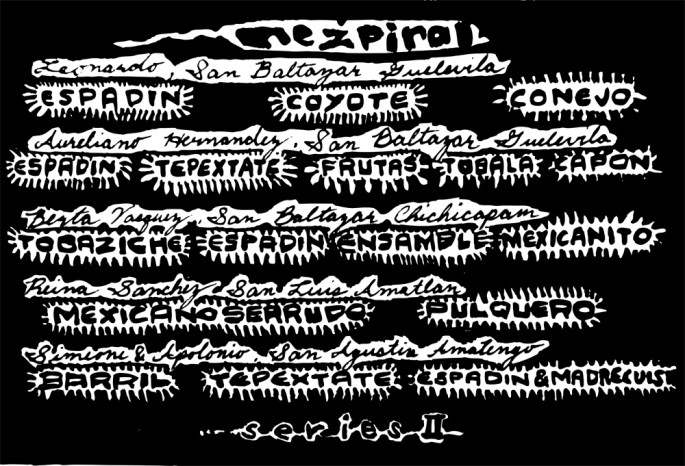 mezpiral
Leonardo, San Baltazar Guelevila
ESPADIN COYOTE CONEJO
Aureliano Hernandez, San Baltazar Guelevila
ESPADIN TEPEXTATE FRUTAS TOBALA ZAPON
Berta Vasquez, San Baltazar Chichicapam
TOBAZICHE ESPADIN ENSAMBLE MEXICANITO
Reina Sanchez, San Luis Amatlan
MEXICANO SERRUDO PULQUERO
Simeone & Apolonio, San Agustin Amatengo
BARRIL TEPEXTATE ESPADIN & MADRECUIS
...series II